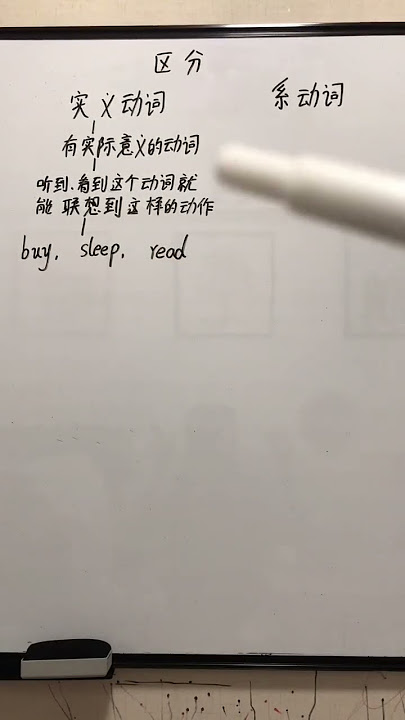 区分
实义动词
系动词
有实际意义的动词
听到、看到这个动词就
能联想到这样的动作
buy, sleep, read